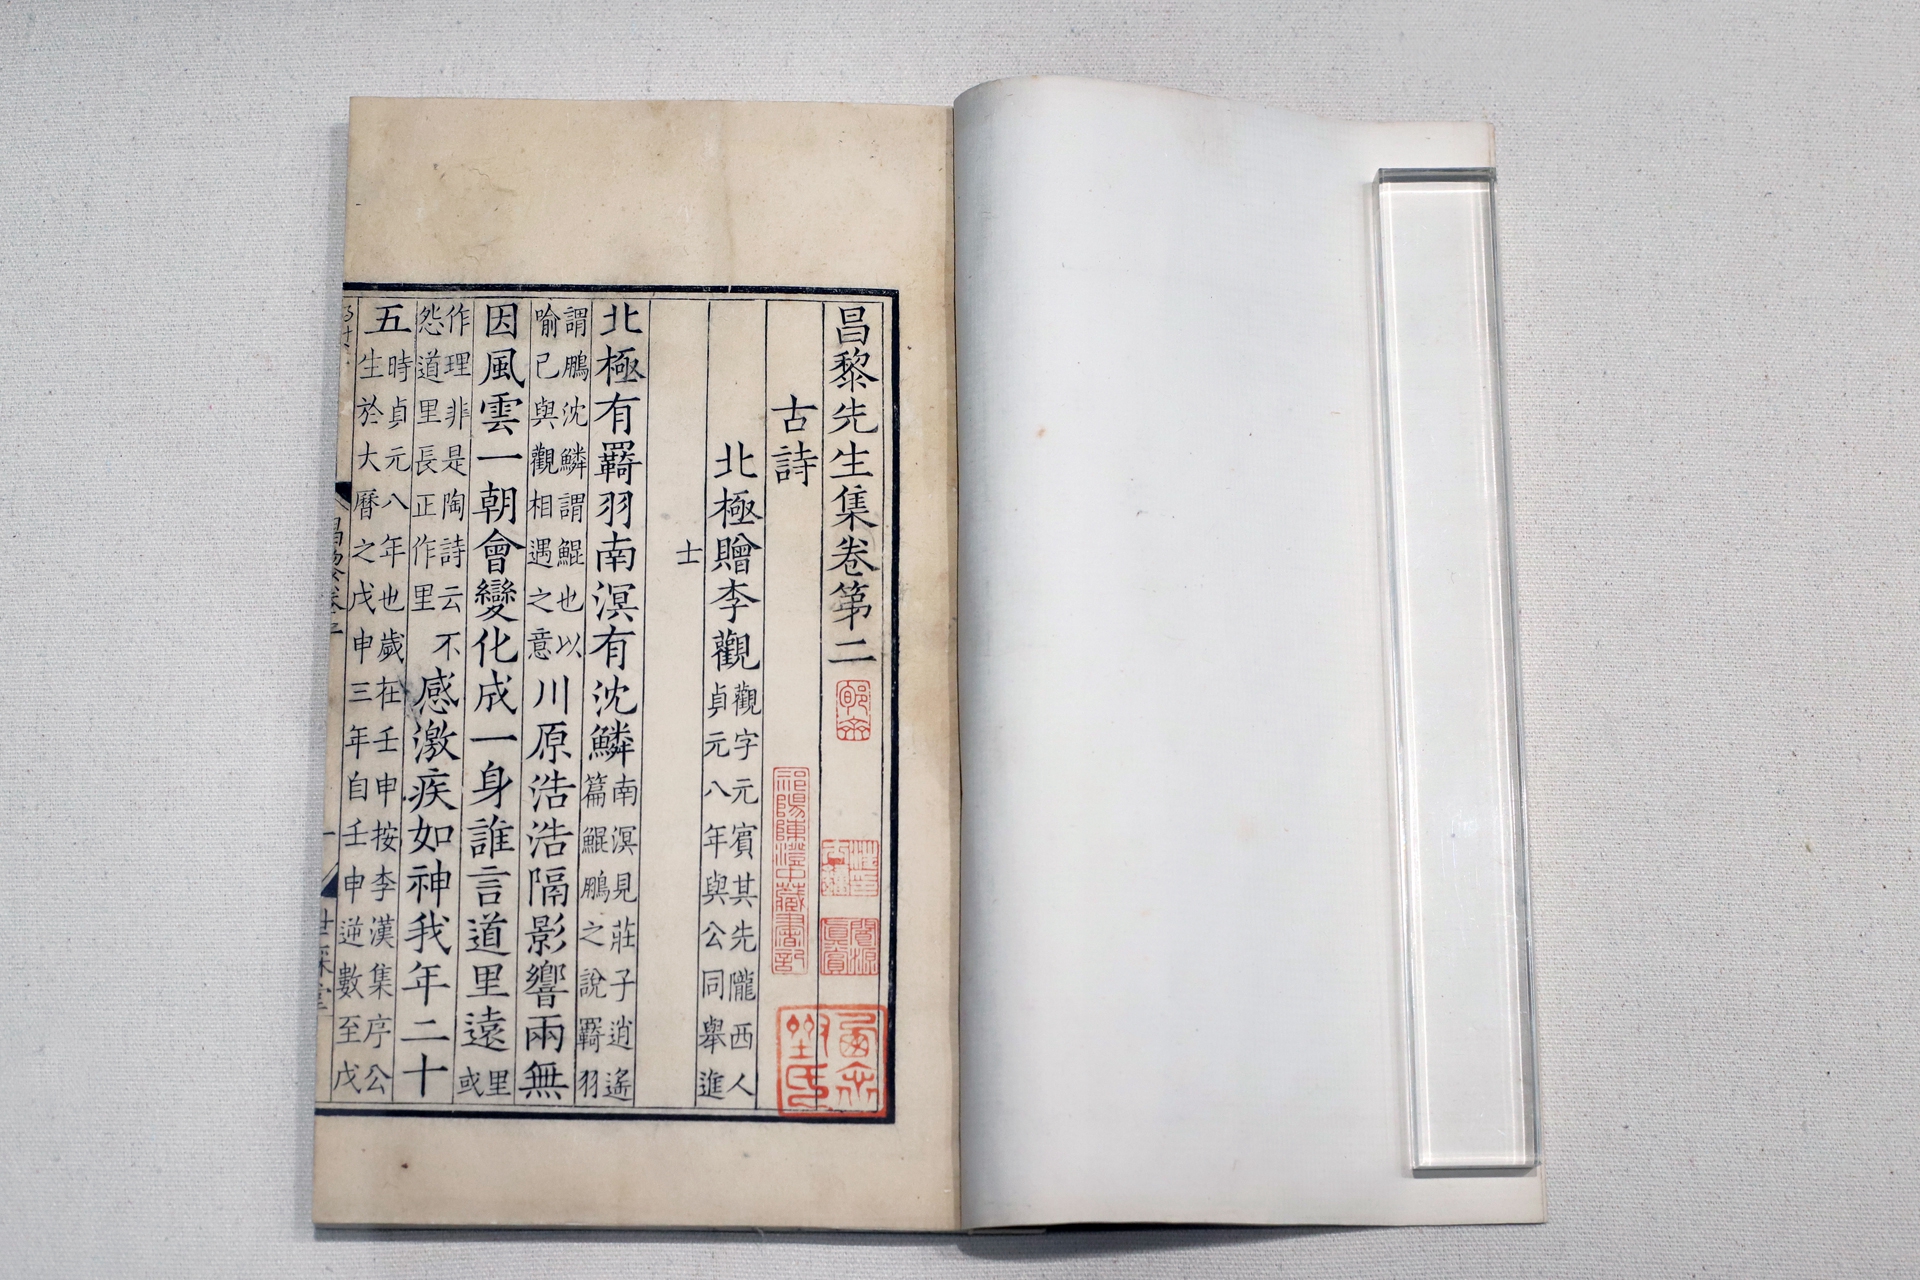 昌黎先生集卷第二
郇齋
閬源真賞
古詩
祁陽陳澄中藏書記
北極贈李觀
觀字元賓其先隴西人
貞元八年與公同舉進
士
北極有羇羽南溟有沈鱗
南溟見莊子逍遙
篇鯤鵬之說羇羽
謂鵬沈鱗謂鯤也以
喻己與觀相遇之意
川原浩浩隔影響兩無
因風雲一朝會變化成一身誰言道里遠
里
或
作理非是陶詩云不
怨道里長正作里
感激疾如神我年二十
五
時貞元八年也歲在壬申按李漢集序公
生於大曆之戊申三年自壬申逆數至戊